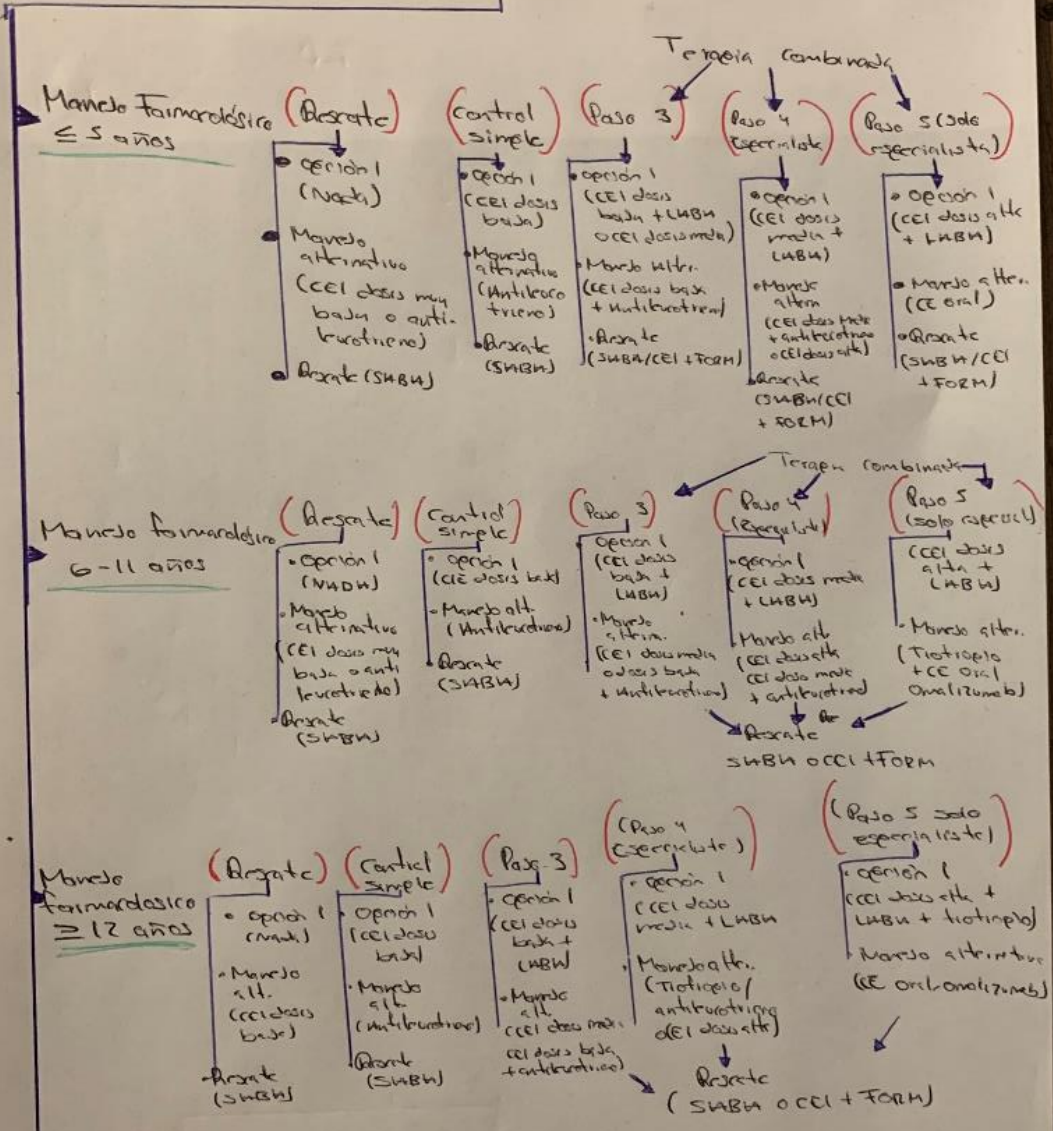 Terapia combinada
Manejo Farmacológico
≤ 5 años
(Rescate)
• opción 1
(Nada)
• Manejo
alternativo
(CEI dosis muy
baja o anti-
leucotrieno)
• Rescate (SABA)
(control
simple)
• opción 1
(CEI dosis
baja)
• Manejo
alternativo
(Antileuco
trieno)
• Rescate
(SABA)
(Paso 3)
• opción 1
(CEI dosis
baja + LABA
o CEI dosis media)
• Manejo alter.
(CEI dosis baja
+ Antileucotrieno)
• Rescate
(SABA/CEI + FORM)
(Paso 4
especialista)
• opción 1
(CEI dosis
media +
LABA)
• Manejo
altern
(CEI dosis media
+ antileucotrieno
o CEI dosis alta)
• Rescate
(SABA/CEI
+ FORM)
(Paso 5 (solo
especialista)
• opción 1
(CEI dosis alta
+ LABA)
• Manejo alter.
(CE oral)
• Rescate
(SABA/CEI
+ FORM)
Terapia combinada
Manejo farmacológico
6-11 años
(Rescate)
• opción 1
(NADA)
• Manejo
alternativo
(CEI dosis muy
baja o anti
leucotrieno)
• Rescate
(SABA)
(control
simple)
• opción 1
(CIE dosis baja)
• Manejo alt.
(Antileucotrieno)
• Rescate
(SABA)
(Paso 3)
opción 1
(CEI dosis
baja +
LABA)
• Manejo
altern.
(CEI dosis media
o dosis baja
+ Antileucotrieno)
(Paso 4
(Especialista)
• opción 1
(CEI dosis media
+ LABA)
Manejo alt
(CEI dosis alta
CEI dosis media
+ antileucotrieno)
(Paso 5
(solo especial)
(CEI dosis
alta +
LABA)
• Manejo alter.
(Tiotropio
+ CE oral
Omalizumab)
Rescate
SABA o CEI + FORM
Manejo
farmacológico
≥ 12 años
(Rescate)
• opción 1
(Nada)
• Manejo
alt.
(CEI dosis
baja)
• Rescate
(SABA)
(Control
simple)
• opción 1
(CEI dosis
baja)
• Manejo
alt.
(Antileucotrieno)
• Rescate
(SABA)
(Paso 3)
• opción 1
(CEI dosis
baja +
LABA)
• Manejo
alt.
(CEI dosis media
CEI dosis baja
+ antileucotrieno)
(Paso 4
especialista)
• opción 1
(CEI dosis
media + LABA
• Manejo alter.
(Tiotropio/
antileucotrieno
o CEI dosis alta)
(Paso 5 solo
especialista)
• opción 1
(CEI dosis alta +
LABA + tiotropio)
• Manejo alternativo
(CE oral-omalizumab)
Rescate
(SABA o CEI + FORM)